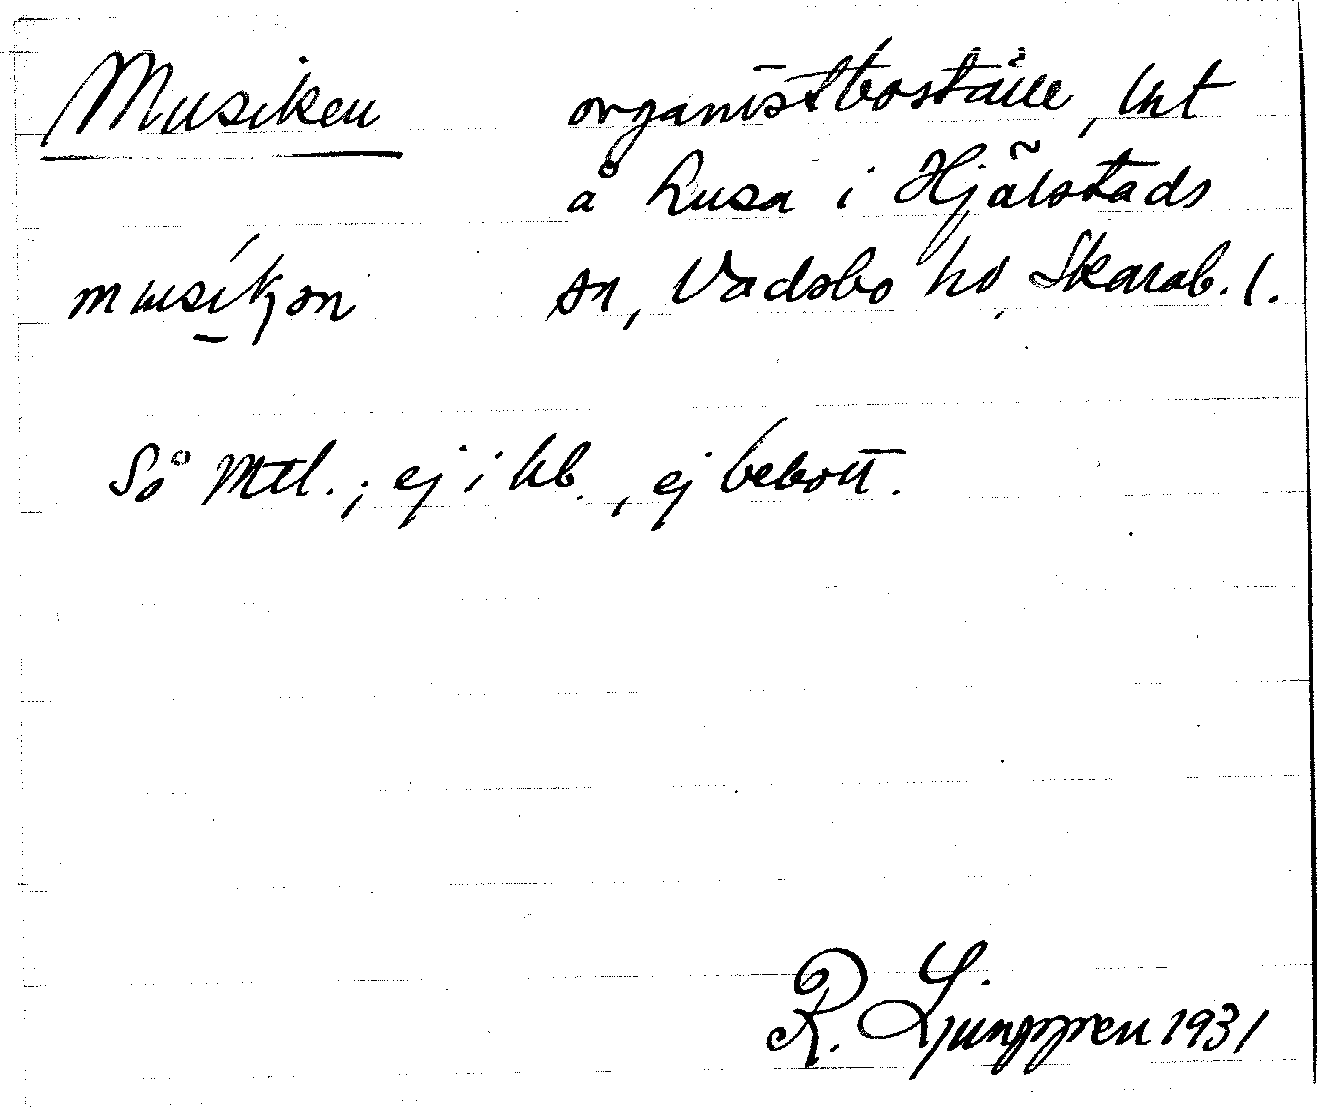 Musiken organistboställe, lht
å Lusa i Hjälstads
musikon sn, Vadsbo hd, Skarab. l.
Så Mtl.; ej i kb., ej bebott.
R. Ljunggren 1931